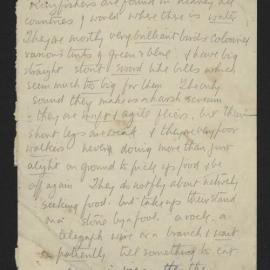 Kingfishers are found in nearly all
countries of world where there is water.
They are mostly very brilliant birds coloured
various tints of green & blue & have big
straight stout sword like bills which
seem much too big for them The only
sound they make is a harsh scream
they are swift & agile fliers, but their
short legs are weak & they are very poor
walkers never doing more than just
alight on ground to pick up food & be
off again They do not fly about actively
seeking food. but take up their stand
on a stone by a pool. a rock, a
telegraph wire or a branch & wait
patiently till something to eat